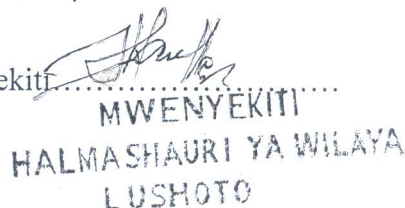 ekiti..............................
MWENYEKITI
HALMASHAURI YA WILAYA
LUSHOTO